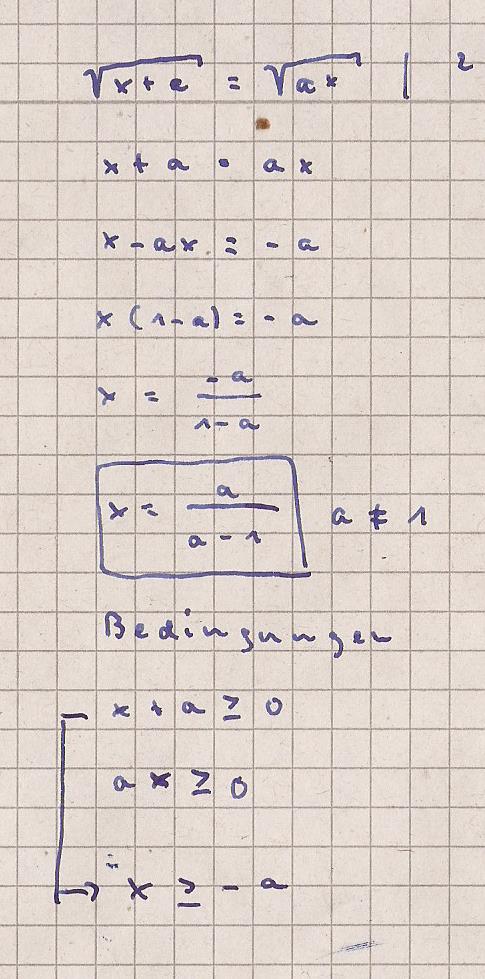 √x+a = √ax | ²
x + a = ax
x - ax = - a
x (1-a) = - a
x = -a/1-a
x = a/a-1 a ≠ 1
Bedingungen
x + a ≥ 0
a x ≥ 0
→ x ≥ - a